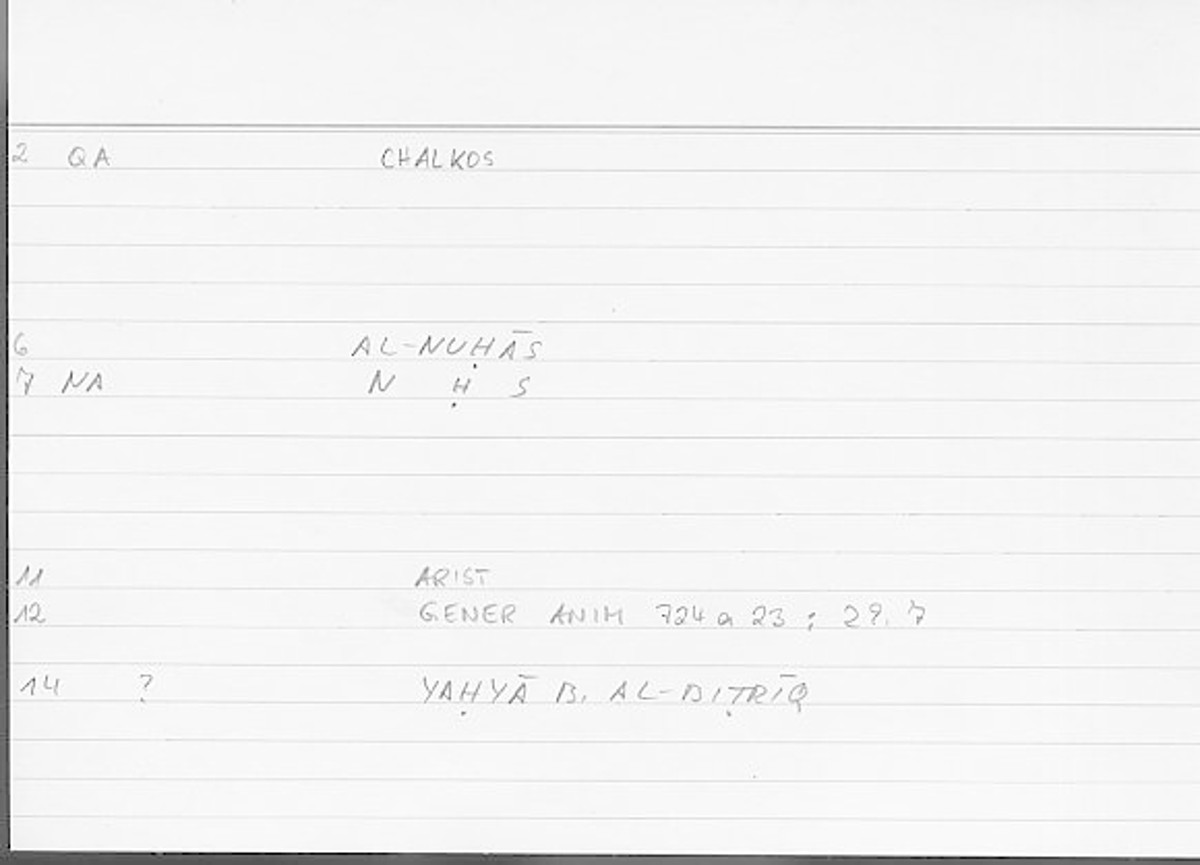 2 QA CHALKOS
6 AL-NUḤĀS
7 NA N Ḥ S
11 ARIST
12 GENER ANIM 724 a 23 ; 29.7
14 ? YAḤYĀ B. AL-BIṬRĪQ